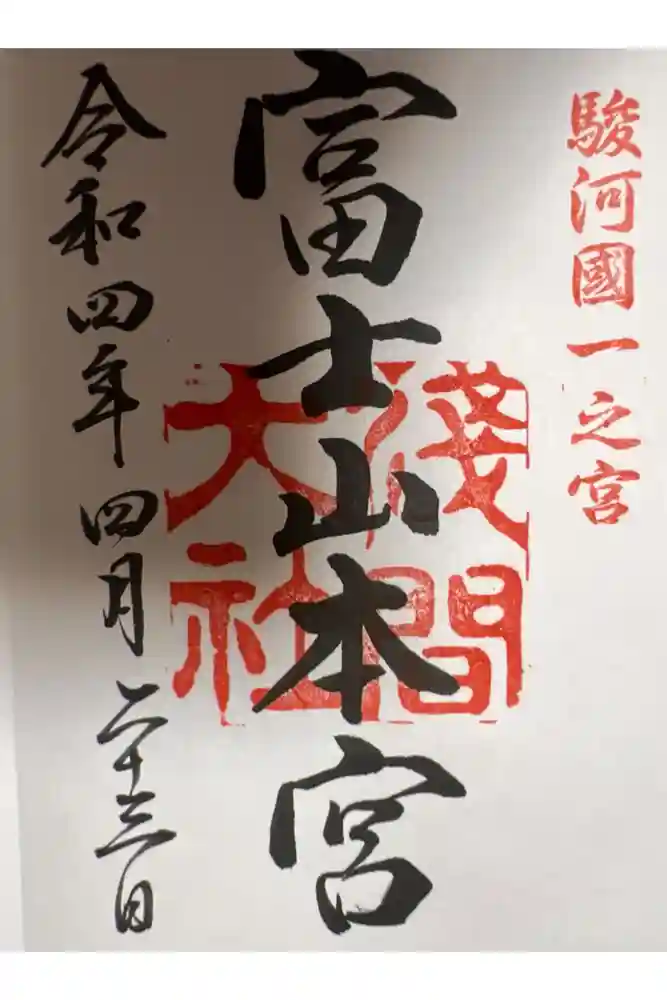 駿河國一之宮
富士山本宮
淺間
大社
令和四年四月二十三日